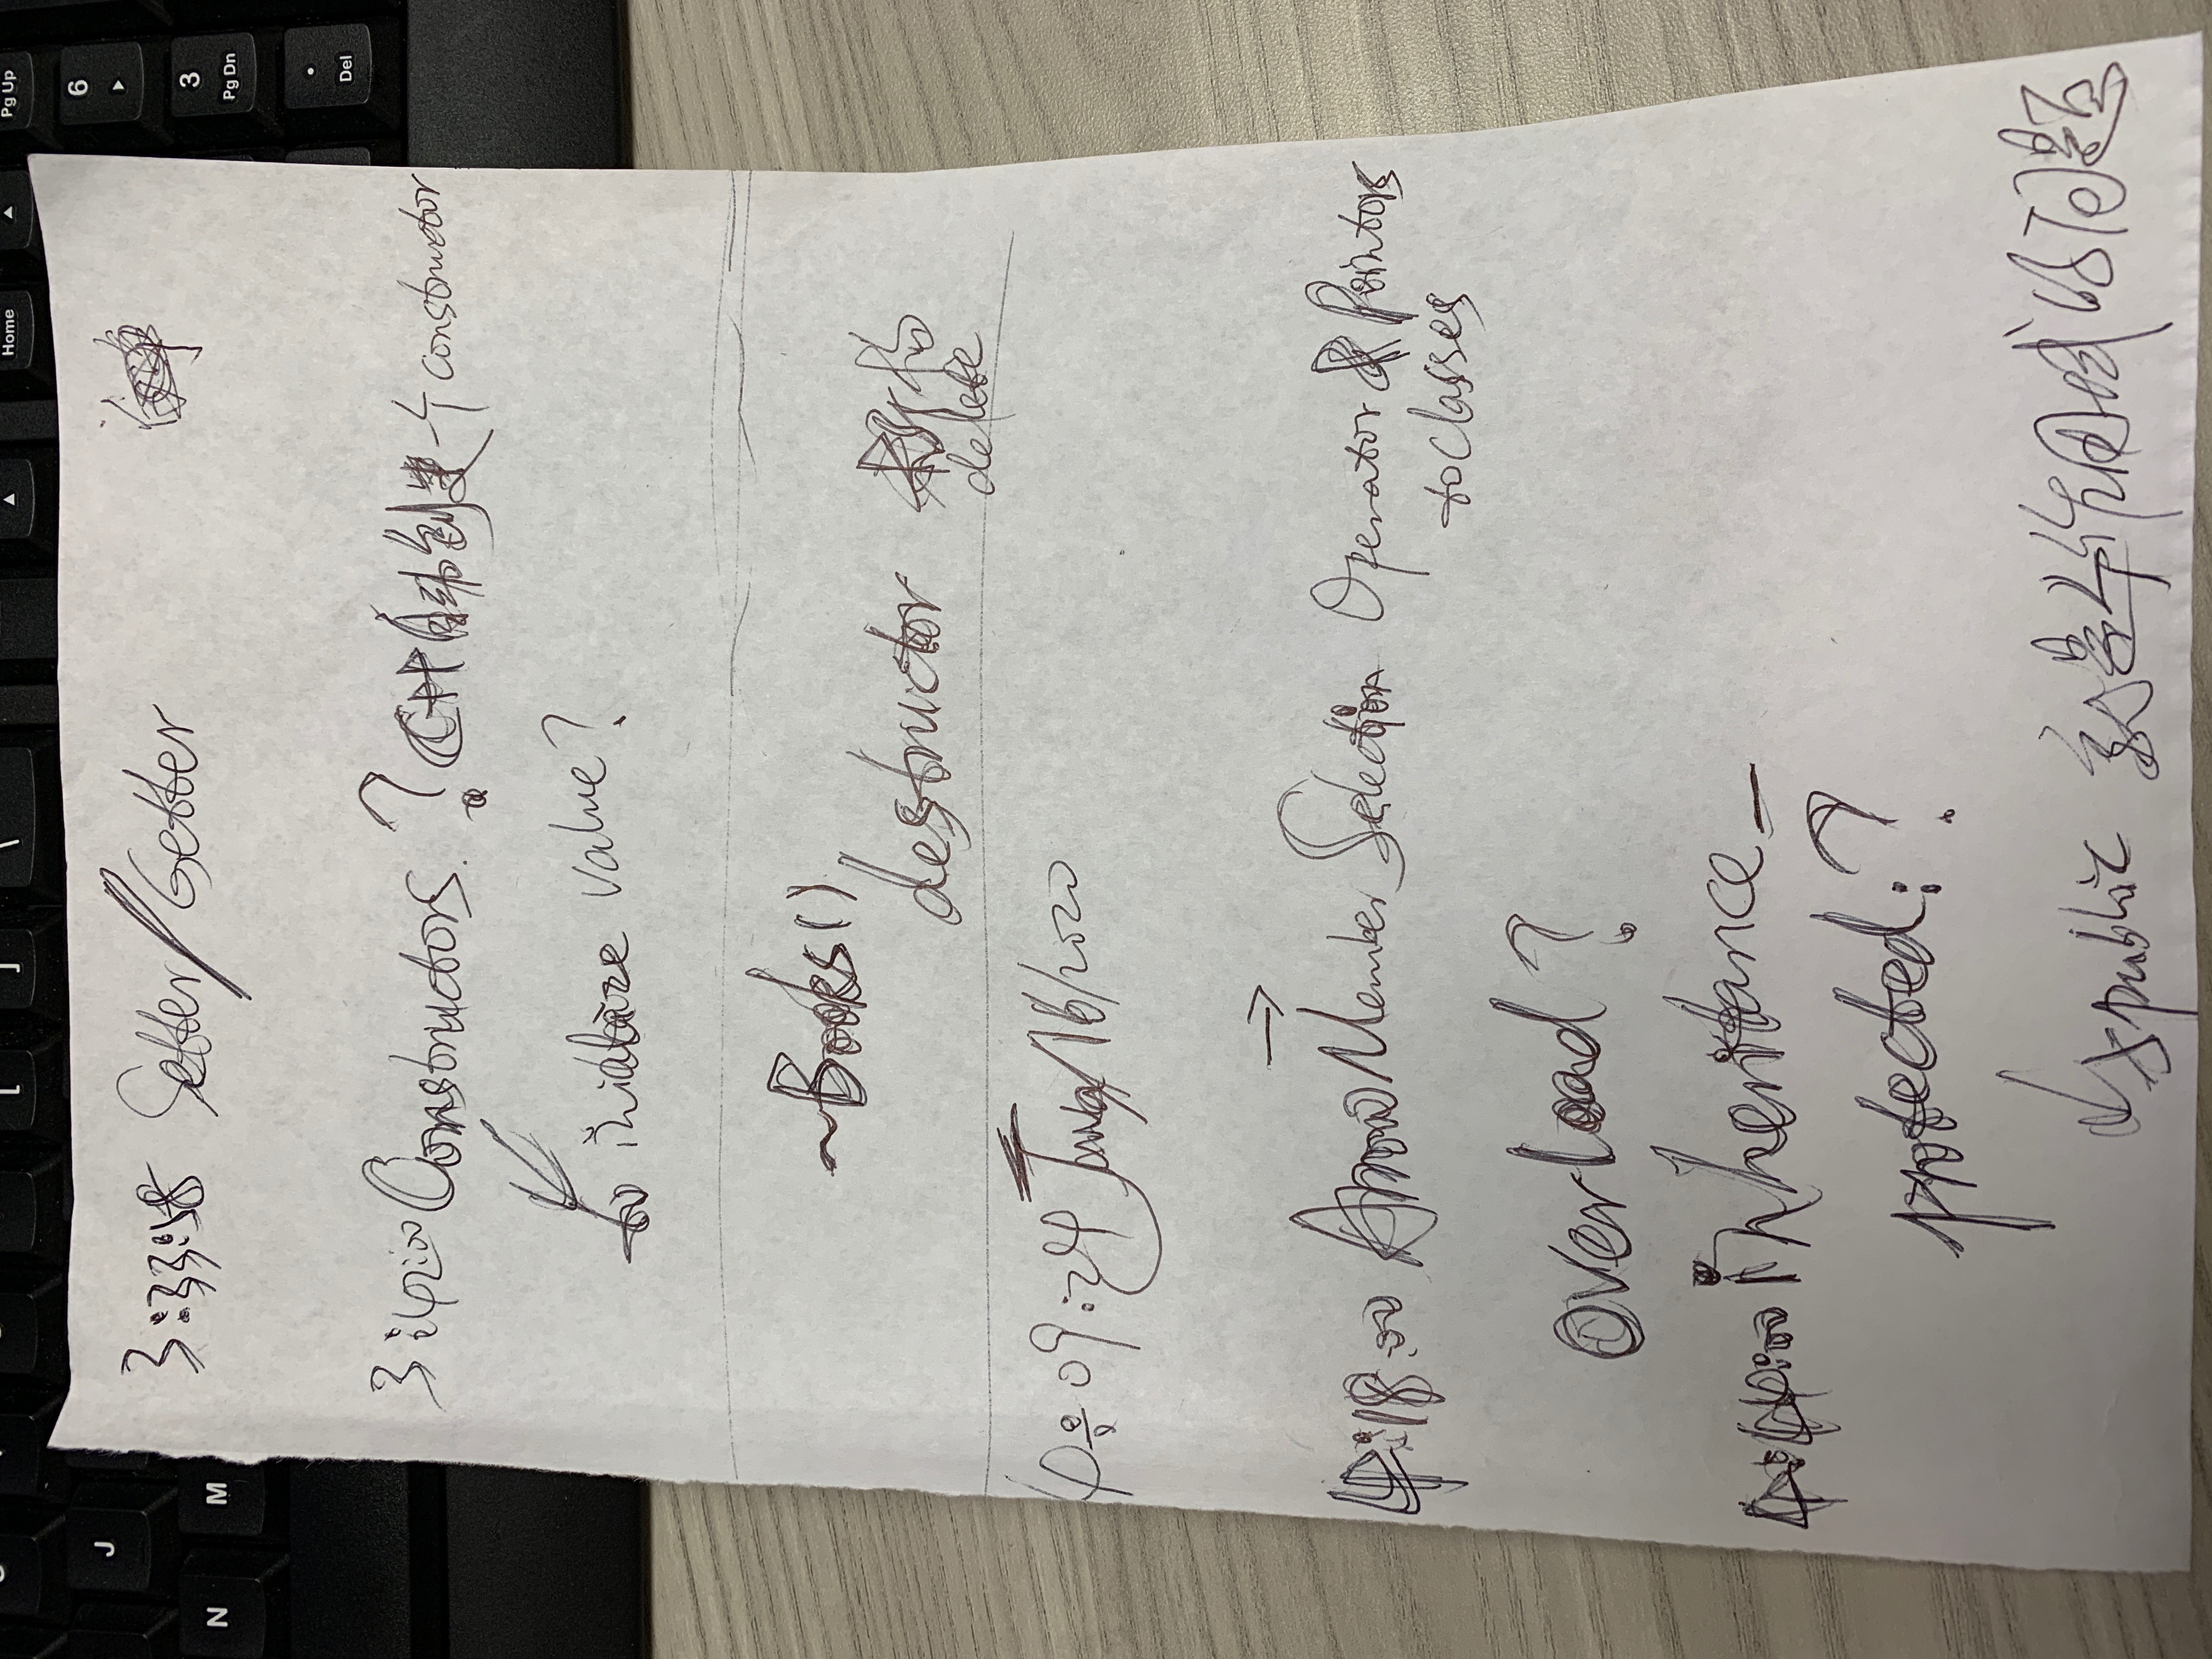 [ ] \ Home Pg Up
J 6
N M 3 Pg Dn
Del
3:33:18 Setter/Getter
3:42:00 Constructors. ? C++自动创建一个constructor
to initialize value?
~Books()
destructor 析构
delete
4:09:24 June/16/2020
→
4:18:00 Arrow Member Selection Operator & Pointors
to classes
overload?
4:44:00 inheritance_
protected:?
与public 就是个作用域的问题